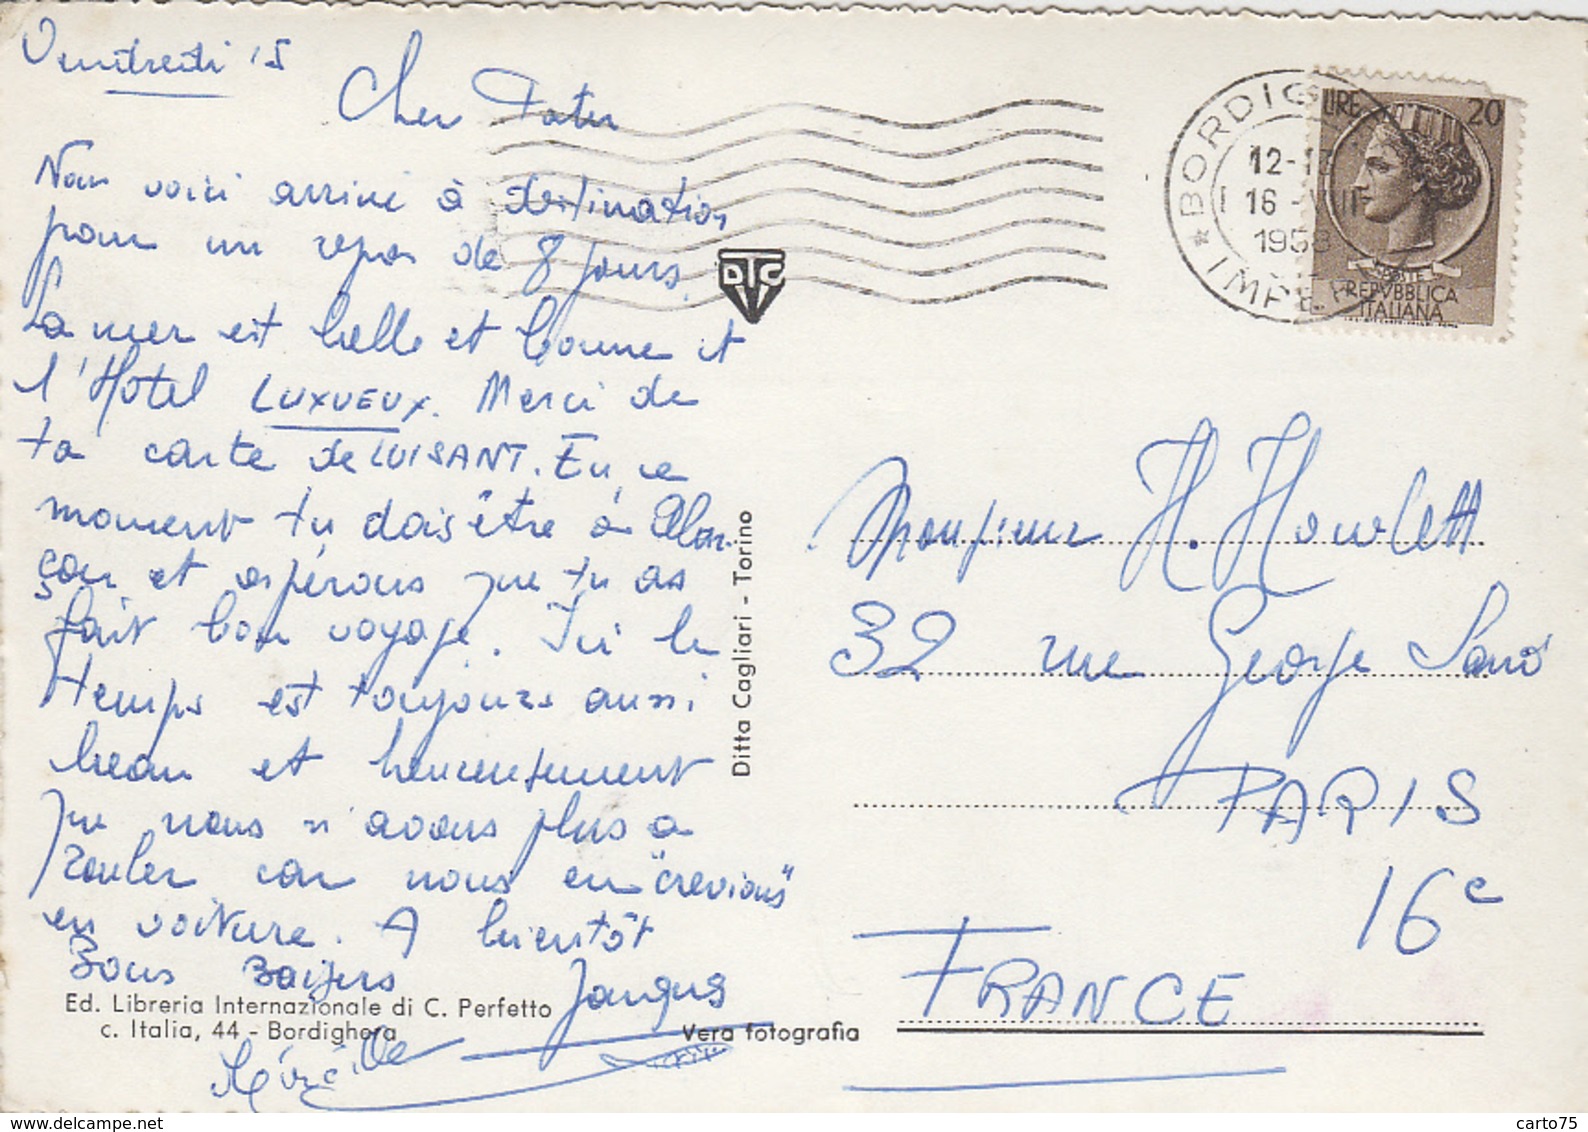 Vendredi 15
Cher Pater
Nous voici arrivé à destination
pour un repos de 8 jours.
La mer est belle et bonne et
l'Hotel LUXUEUX. Merci de
ta carte de LUISANT. En ce
moment tu dois être à Alen-
çon et espérons que tu as
fait bon voyage. Ici le
temps est toujours aussi
beau et heureusement
que nous n'avons plus a
rouler car nous en "crevions"
en voiture. A bientôt
Bons Baisers Jacques
Ed. Libreria Internazionale di C. Perfetto
c. Italia, 44 - Bordighera
Vera fotografia
DTC
Ditta Cagliari - Torino
BORDIG
12-1
16 - VIII
1958
IMPE
LIRE 20
POSTE
REPVBBLICA
ITALIANA
Monsieur H. Howlett
32 rue George Sand
PARIS
16e
FRANCE
© carto75